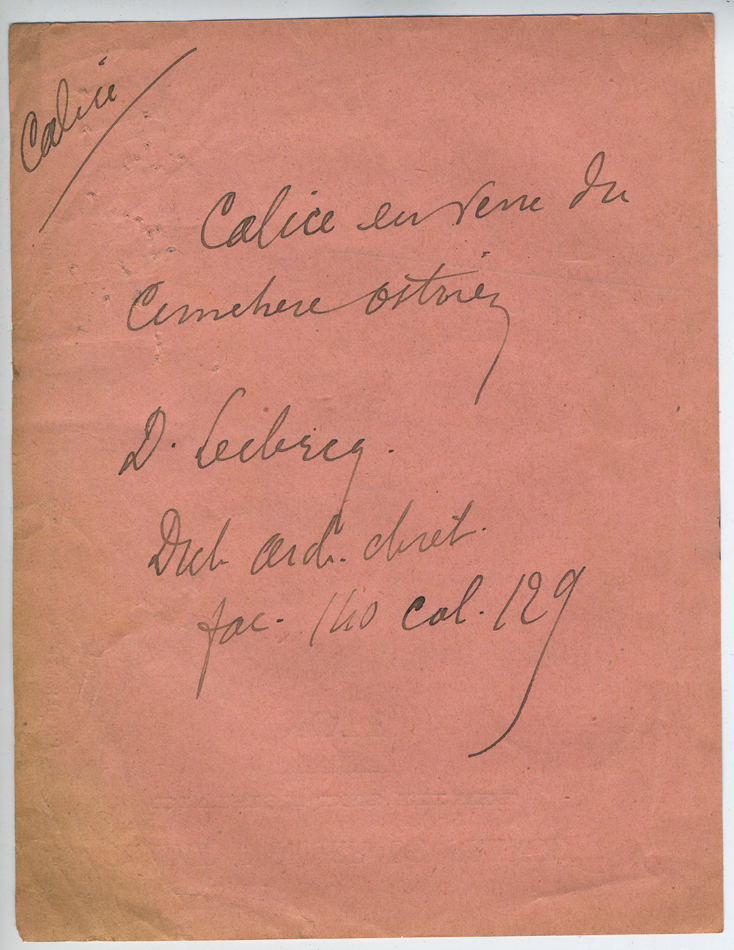 Calice
Calice en verre du
Cimetière ostrien
D. Leclercq.
Dict. arch. chrét.
fac. 140 col. 129